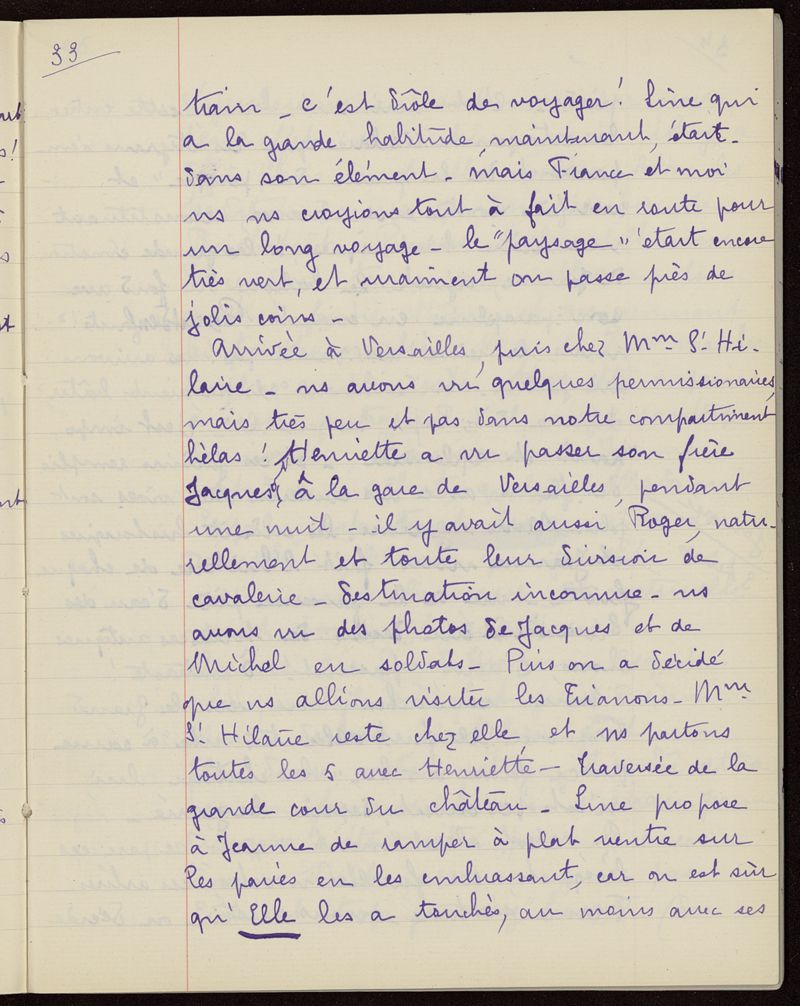 33
train – c'est drôle de voyager! Line qui
a la grande habitude, maintenant, était
dans son élément – mais France et moi
ns ns croyions tout à fait en route pour
un long voyage – le "paysage" était encore
très vert, et vraiment on passe près de
jolis coins –
Arrivée à Versailles, puis chez Mme St Hi-
laire – ns avons vu quelques permissionaires,
mais très peu et pas dans notre compartiment
hélas! Henriette a vu passer son frère
Jacques, à la gare de Versailles, pendant
une nuit – il y avait aussi Roger, natu-
rellement et toute leur division de
cavalerie – destination inconnue – ns
avons vu des photos de Jacques et de
Michel en soldats – Puis on a décidé
que ns allions visiter les Trianons – Mme
St Hilaire reste chez elle, et ns partons
toutes les 5 avec Henriette – Traversée de la
grande cour du château – Line propose
à Jeanne de ramper à plat ventre sur
les pavés en les embrassant, car on est sûr
qu'Elle les a touchés, au moins avec ses